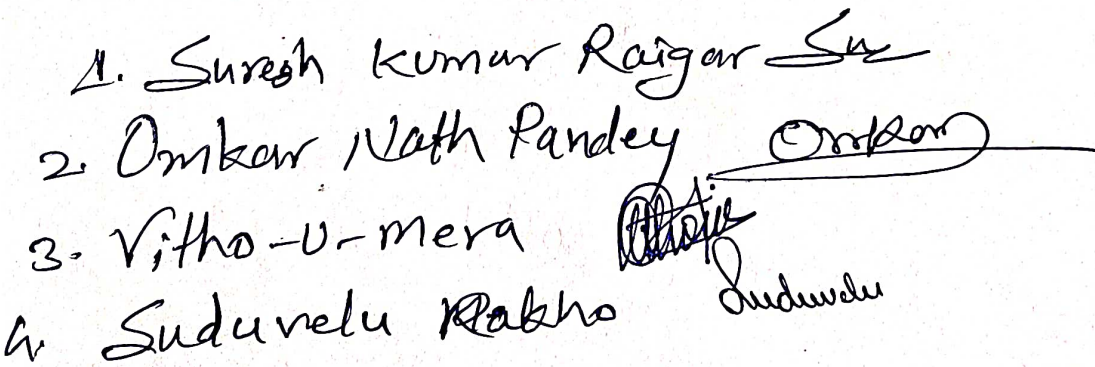 1. Suresh Kumar Raigar Su
2. Omkar Nath Pandey Omkar
3. Vitho-U-mera
4. Suduvelu Rakho Suduvelu